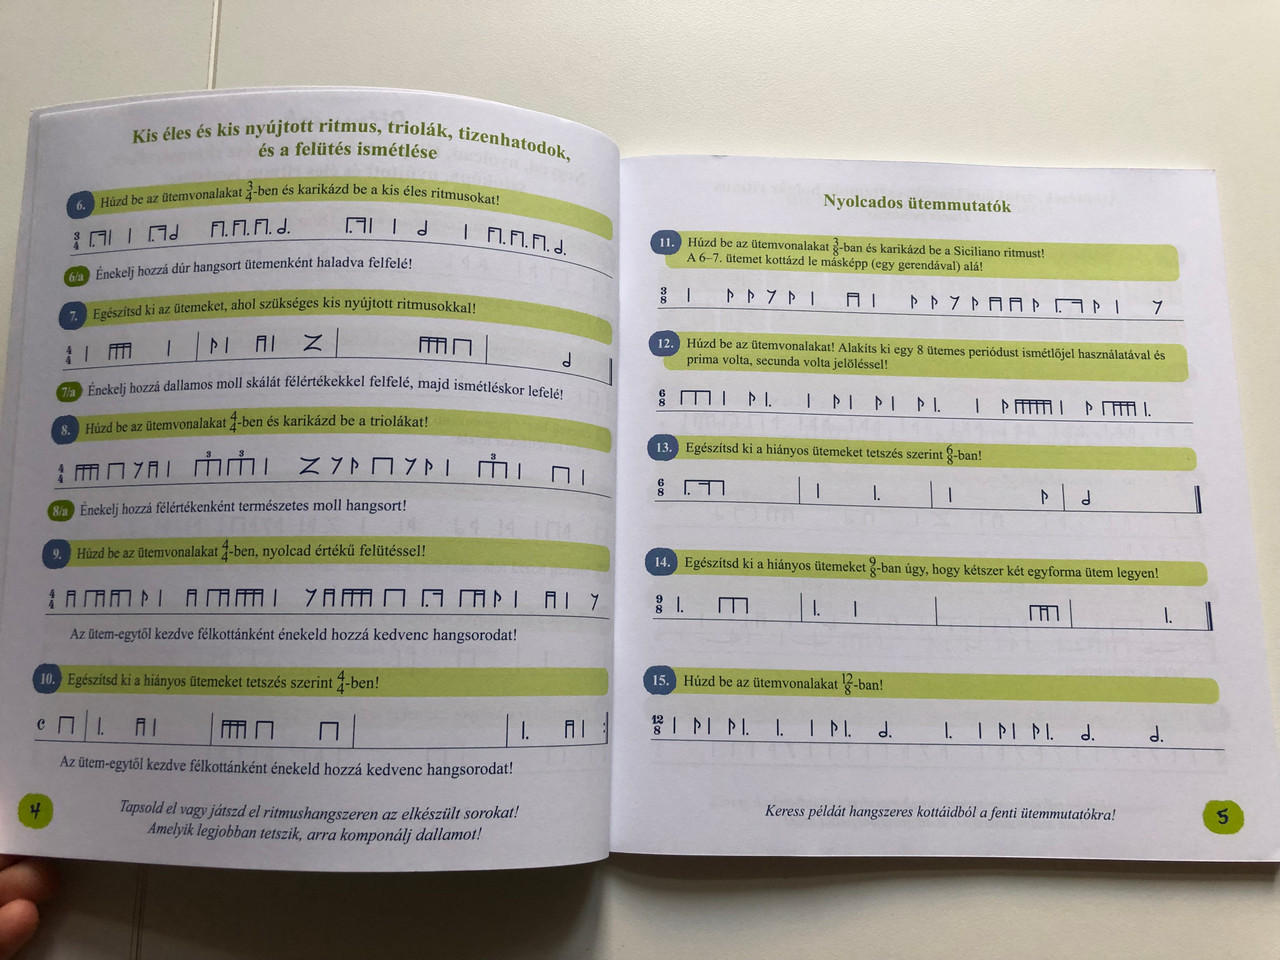 Kis éles és kis nyújtott ritmus, triolák, tizenhatodok,
és a felütés ismétlése
6. Húzd be az ütemvonalakat 3/4-ben és karikázd be a kis éles ritmusokat!
3/4
6/a Énekelj hozzá dúr hangsort ütemenként haladva felfelé!
7. Egészítsd ki az ütemeket, ahol szükséges kis nyújtott ritmusokkal!
4/4
7/a Énekelj hozzá dallamos moll skálát félértékekkel felfelé, majd ismétléskor lefelé!
8. Húzd be az ütemvonalakat 4/4-ben és karikázd be a triolákat!
4/4 3 3 3
8/a Énekelj hozzá félértékenként természetes moll hangsort!
9. Húzd be az ütemvonalakat 4/4-ben, nyolcad értékű felütéssel!
4/4
Az ütem-egytől kezdve félkottánként énekeld hozzá kedvenc hangsorodat!
10. Egészítsd ki a hiányos ütemeket tetszés szerint 4/4-ben!
C
Az ütem-egytől kezdve félkottánként énekeld hozzá kedvenc hangsorodat!
Tapsold el vagy játszd el ritmushangszeren az elkészült sorokat!
Amelyik legjobban tetszik, arra komponálj dallamot!
4
Nyolcados ütemmutatók
11. Húzd be az ütemvonalakat 3/8-ban és karikázd be a Siciliano ritmust!
A 6–7. ütemet kottázd le másképp (egy gerendával) alá!
3/8
12. Húzd be az ütemvonalakat! Alakíts ki egy 8 ütemes periódust ismétlőjel használatával és
prima volta, secunda volta jelöléssel!
6/8
13. Egészítsd ki a hiányos ütemeket tetszés szerint 6/8-ban!
6/8
14. Egészítsd ki a hiányos ütemeket 9/8-ban úgy, hogy kétszer két egyforma ütem legyen!
9/8
15. Húzd be az ütemvonalakat 12/8-ban!
12/8
Keress példát hangszeres kottáidból a fenti ütemmutatókra!
5